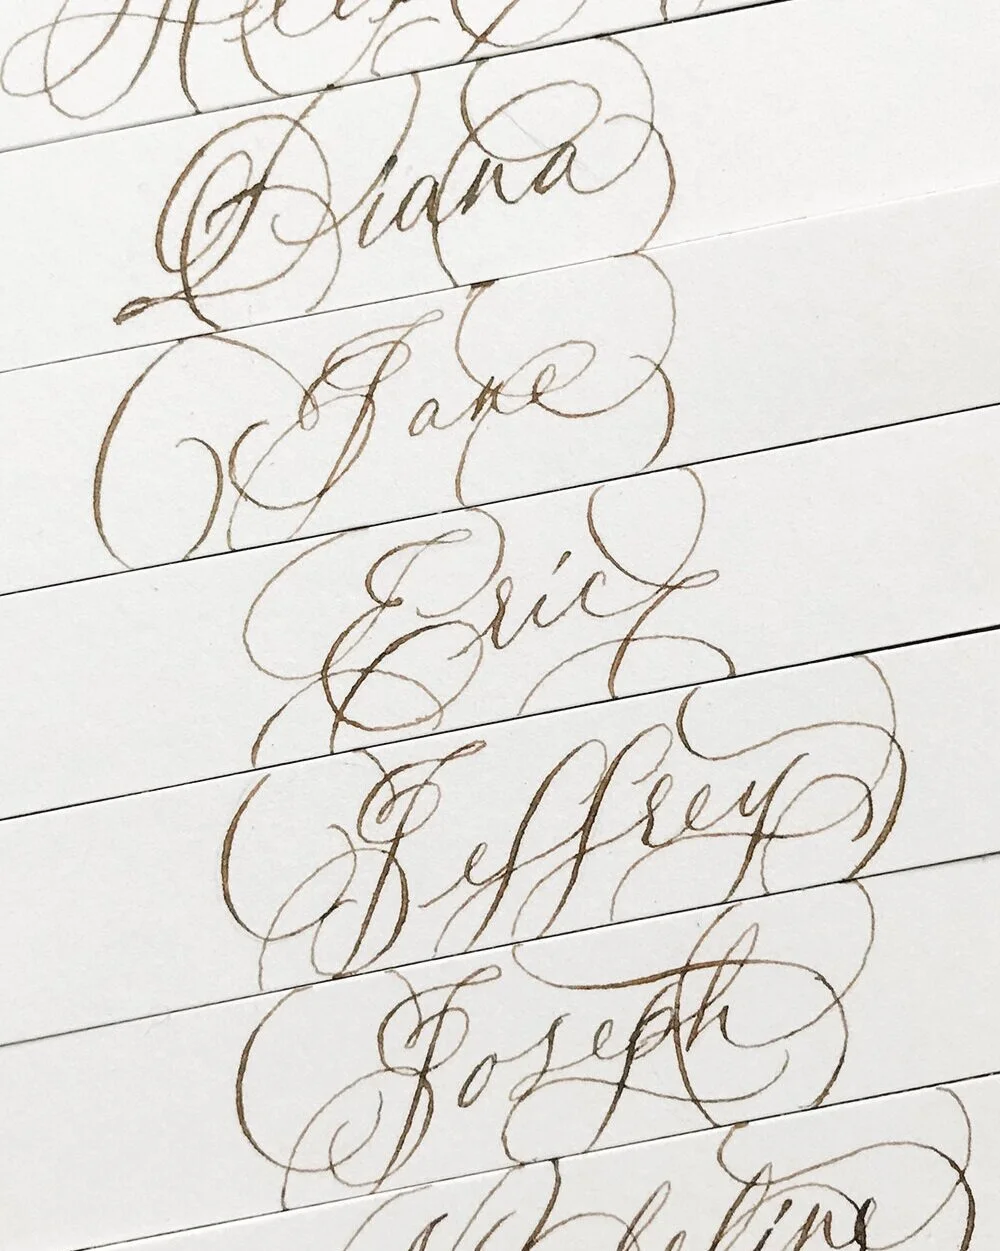 Diana
Jane
Eric
Jeffrey
Joseph